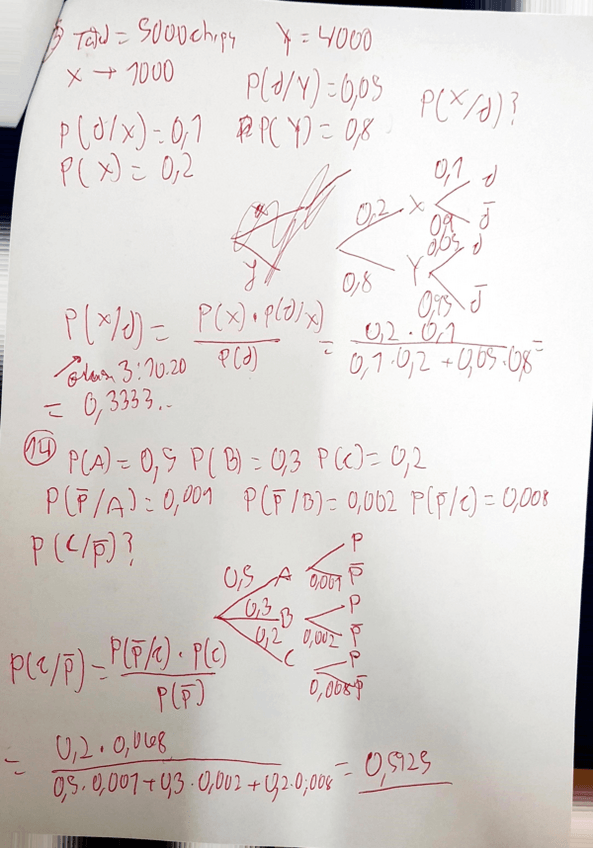 Total = 5000 chips Y = 4000
X → 1000
P(d/Y) = 0,05
P(X/d)?
P(d/X) = 0,1 P(Y) = 0,8
P(X) = 0,2
0,2 X 0,1 d
0,9 d̄
0,8 Y 0,05 d
0,95 d̄
P(X/d) = P(X) · P(d/X) / P(d) = 0,2 · 0,1 / 0,1 · 0,2 + 0,05 · 0,8 =
3:10.20
= 0,3333..
14 P(A) = 0,5 P(B) = 0,3 P(C) = 0,2
P(P̄/A) = 0,001 P(P̄/B) = 0,002 P(P̄/C) = 0,008
P(C/P̄)?
0,5 A P
0,001 P̄
0,3 B P
0,002 P̄
0,2 C P
0,008 P̄
P(C/P̄) = P(P̄/C) · P(C) / P(P̄)
= 0,2 · 0,008 / 0,5 · 0,001 + 0,3 · 0,002 + 0,2 · 0,008 = 0,5925